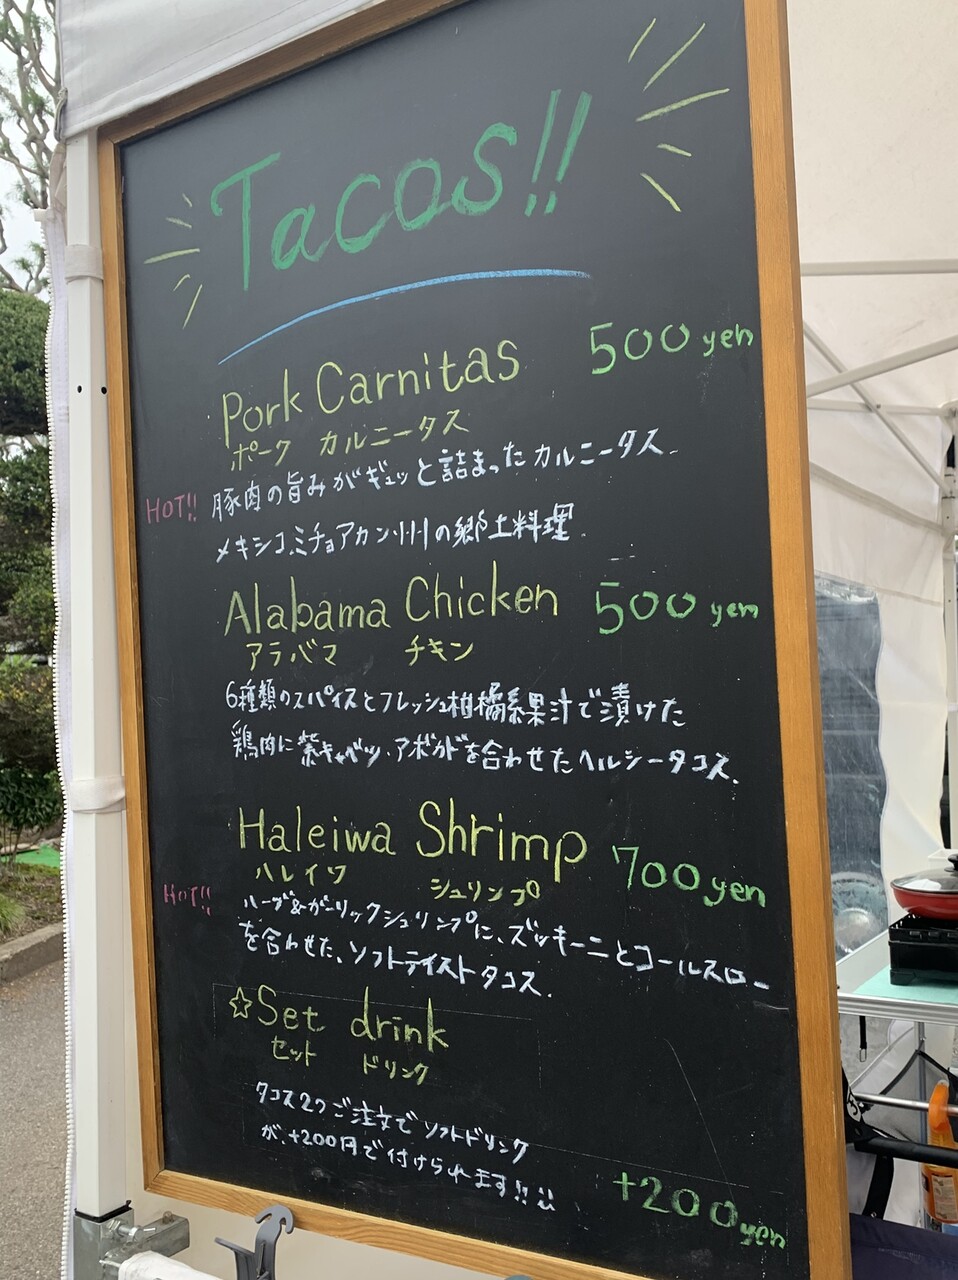 Tacos!!
Pork Carnitas 500 yen
ポーク カルニータス
HOT!! 豚肉の旨みがギュッと詰まったカルニータス
メキシコ.ミチョアカン州の郷土料理.
Alabama Chicken 500 yen
アラバマ チキン
6種類のスパイスとフレッシュ柑橘系果汁で漬けた
鶏肉に紫キャベツ.アボカドを合わせたヘルシータコス.
Haleiwa Shrimp 700 yen
ハレイワ シュリンプ
HOT!! ハーブ&ガーリックシュリンプに、ズッキーニとコールスロー
を合わせた、ソフトテイストタコス.
☆Set drink
セット ドリンク
タコス2つご注文でソフトドリンク
が、+200円で付けられます!!
+200yen